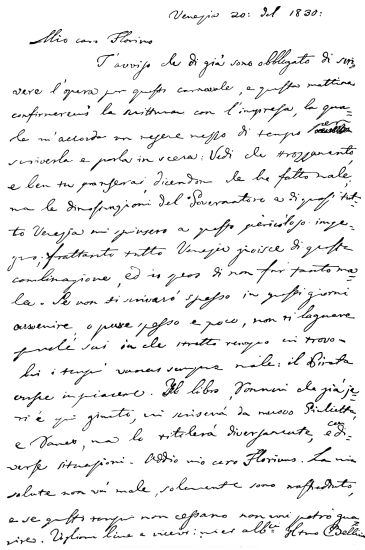 Venezia 20: del 1830:
Mio caro Florimo
T'avviso che di già sono obbligato di scri
vere l'opera per questo carnevale, e questa mattina
confirmeremo la scrittura con l'impresa, la qua-
le m'accorda un mese e mezzo di tempo per
scriverla e porla in scena: Vedi che strozzamento,
e ben tu penserai, dicendomi che ho fatto male,
ma le dimostrazioni del Governatore e di quasi tut-
to Venezia mi spinsero a questo pericoloso impe-
gno; frattanto tutto Venezia gioisce di questa
combinazione, ed io spero di non far tanto ma
le. Se non ti scriverò spesso in questi giorni
avvenire, o pure spesso e poco, non ti lagnare
perchè sai in che stretto tempo mi trovo
il Pirata
piacere. Il libro, Romani che già je-
ri è qui giunto, mi scriverà da nuovo Giulietta,
e Romeo, ma lo titolerà diversamente, e con di-
verse situazioni. Addio mio caro Florimo. La mia
salute non và male, solamente sono raffreddato,
e se questi tempi non cessano non mi potrò gua
rire. Voglimi bene e ricevi i miei abbr: Il tuo Bellini